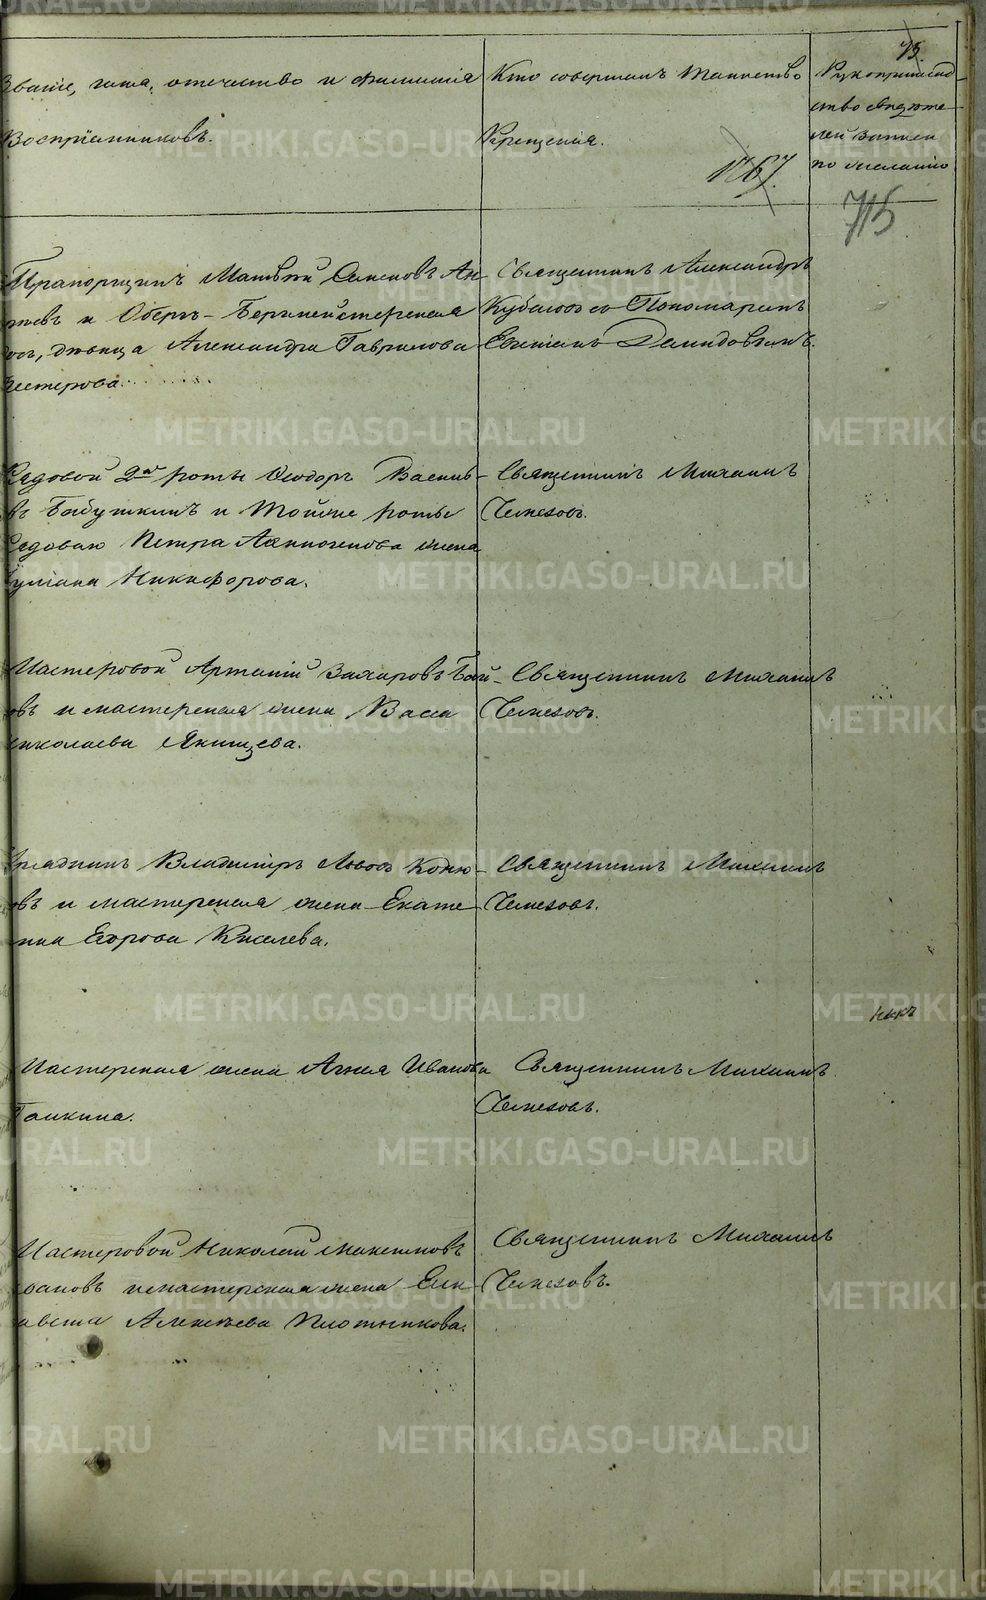 75.
Званіе, имя, отечество и фамилія
Воспріемниковъ.
Кто совершалъ таинство
Крещенія.
1767.
Рукоприклад
ство свидѣте
лей записи
по желанію
715
Прапорщикъ Матвѣй Семеновъ Ан-
и Оберъ-Бергмейстерская
дѣвица Александра Гаврилова
нестерова.
Священникъ Александръ
съ Пономаремъ
Демидовымъ.
Рядовой 2й роты Ѳеодоръ Василь-
въ Бабушкинъ и тойже роты
рядоваго Петра жена
Никифорова.
Священникъ Михаилъ
Чемезовъ.
Мастеровой Артемій Захаровъ
овъ и мастерская жена Васса
николаева Якимцева.
Священникъ Михаилъ
Чемезовъ.
Урядникъ Владимиръ Львовъ Коню-
овъ и мастерская жена Екате
рина Егорова Киселева.
Священникъ Михаилъ
Чемезовъ.
Мастерская жена Агнія Иванова
Галкина.
Священникъ Михаилъ
Чемезовъ.
Мастеровой Николай Максимовъ
и мастерская жена Ели
завета Алексѣева Плотникова.
Священникъ Михаилъ
Чемезовъ.
METRIKI.GASO-URAL.RU